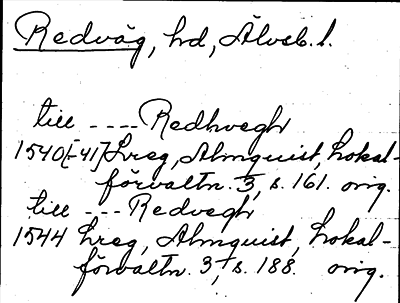 Redväg, hd, Älvsb. l.
till ---- Redhvegh
1540[-41] Hreg, Almquist, Lokal-
förvaltn. 3, s. 161. orig.
till --- Redvegh
1544 Hreg, Almquist, Lokal-
förvaltn. 3, s. 188. orig.